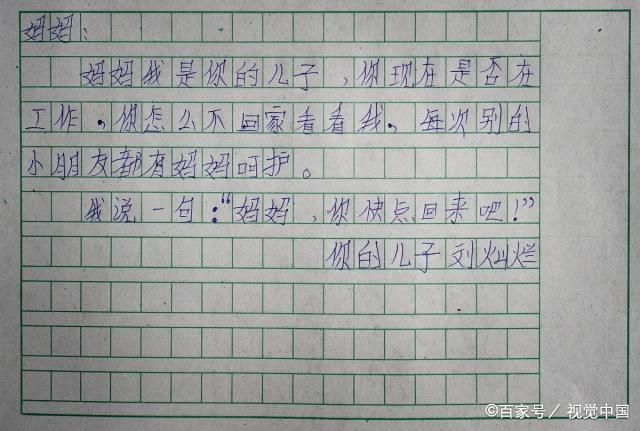 妈妈：
妈妈我是你的儿子，你现在是否在
工作，你怎么不回家看看我，每次别的
小朋友都有妈妈呵护。
我说一句：“妈妈，你快点回来吧！”
你的儿子刘灿烂
©百家号／视觉中国